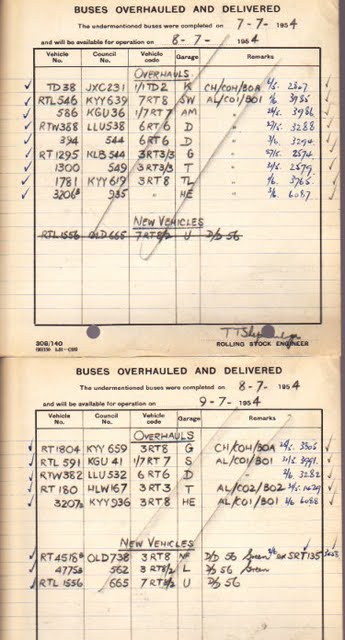 BUSES OVERHAULED AND DELIVERED
The undermentioned buses were completed on 7-7-1954
and will be available for operation on 8-7-1954
Vehicle No. Council No. Vehicle code Garage Remarks
OVERHAULS
TD38 JXC231 1/1TD2 K CH/COH/30A
RTL546 KYY639 7RT8 SW AL/CO1/BO1
586 KGU36 1/7RT7 AM "
RTW388 LLU538 6RT6 D " 3288
394 544 6RT6 D " 3294
RT1295 KLB544 3RT3/3 G " 2674
1300 549 3RT3/3 T " 2679
1781 KYY619 3RT8 TL " 3765
3206 935 " HE " 6087
NEW VEHICLES
RTL1556 OLD665 7RT8/2 U D/D 56
308/140
ROLLING STOCK ENGINEER
BUSES OVERHAULED AND DELIVERED
The undermentioned buses were completed on 8-7-1954
and will be available for operation on 9-7-1954
Vehicle No. Council No. Vehicle code Garage Remarks
OVERHAULS
RT1804 KYY659 3RT8 G CH/COH/30A
RTL591 KGU41 1/7RT7 S AL/CO1/BO1
RTW382 LLU532 6RT6 D " 3282
RT180 HLW167 3RT3 T AL/CO2/BO2
3207 KYY936 3RT8 HE AL/CO1/BO1 6088
NEW VEHICLES
RT4518 OLD738 3RT8 NF D/D 56 Green SRT135
4775 562 3RT8/2 L D/D 56 Green
RTL1556 665 7RT8/2 U D/D 56